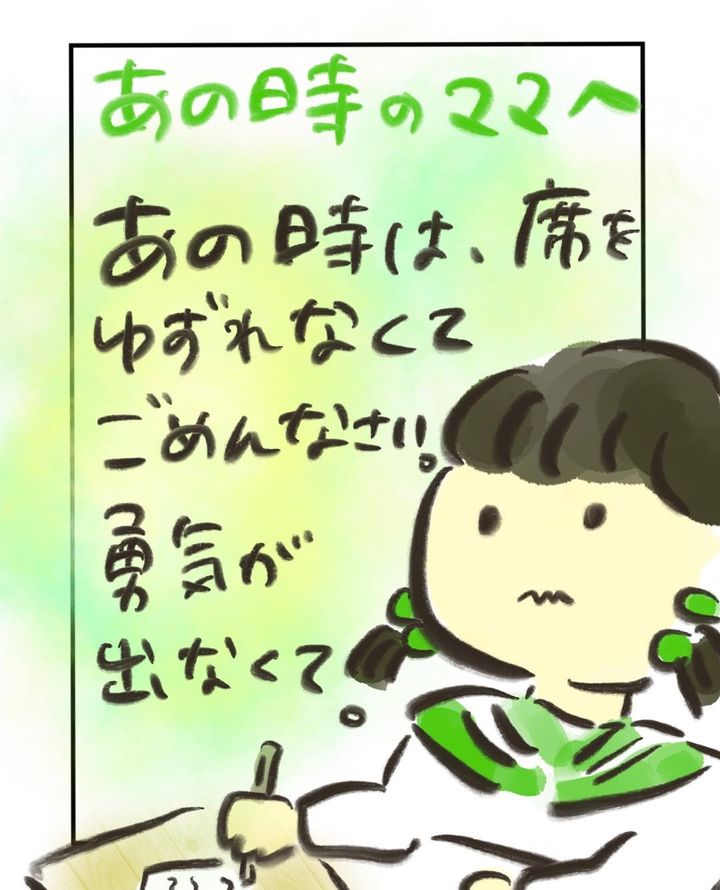 あの時のママへ
あの時は、席を
ゆずれなくて
ごめんなさい。
勇気が
出なくて。